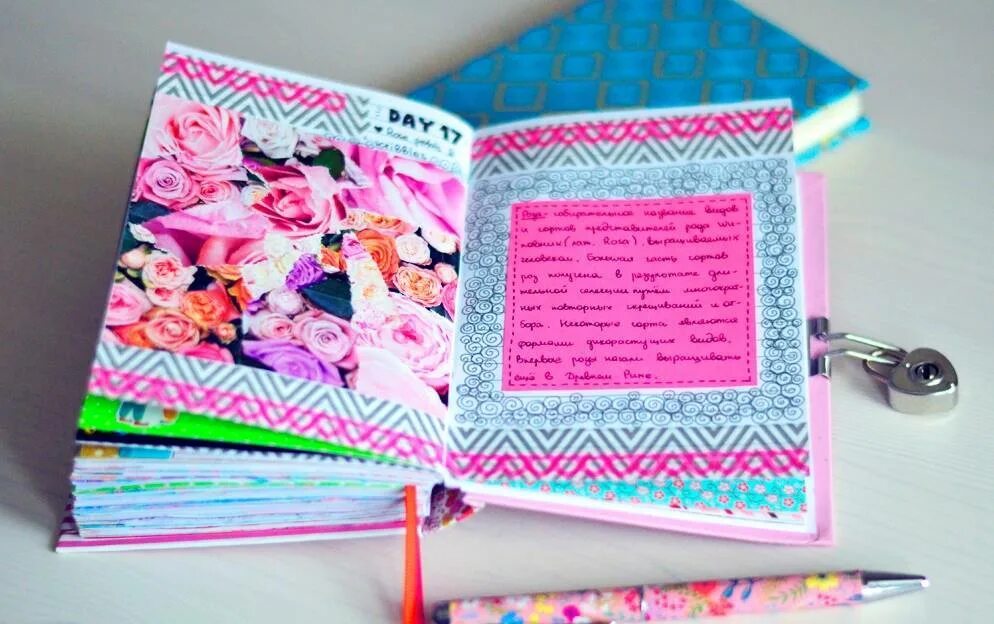 DAY 17
♥ Rose petals &
Scribbles
Роза - собирательное название видов
и сортов представителей рода Ши-
повник (лат. Rosa), выращиваемых
человеком. Большая часть сортов
роз получена в результате дли-
тельной селекции путём многократ-
ных повторных скрещиваний и от-
бора. Некоторые сорта являются
формами дикорастущих видов.
Впервые розы начали выращивать
ещё в Древнем Риме.